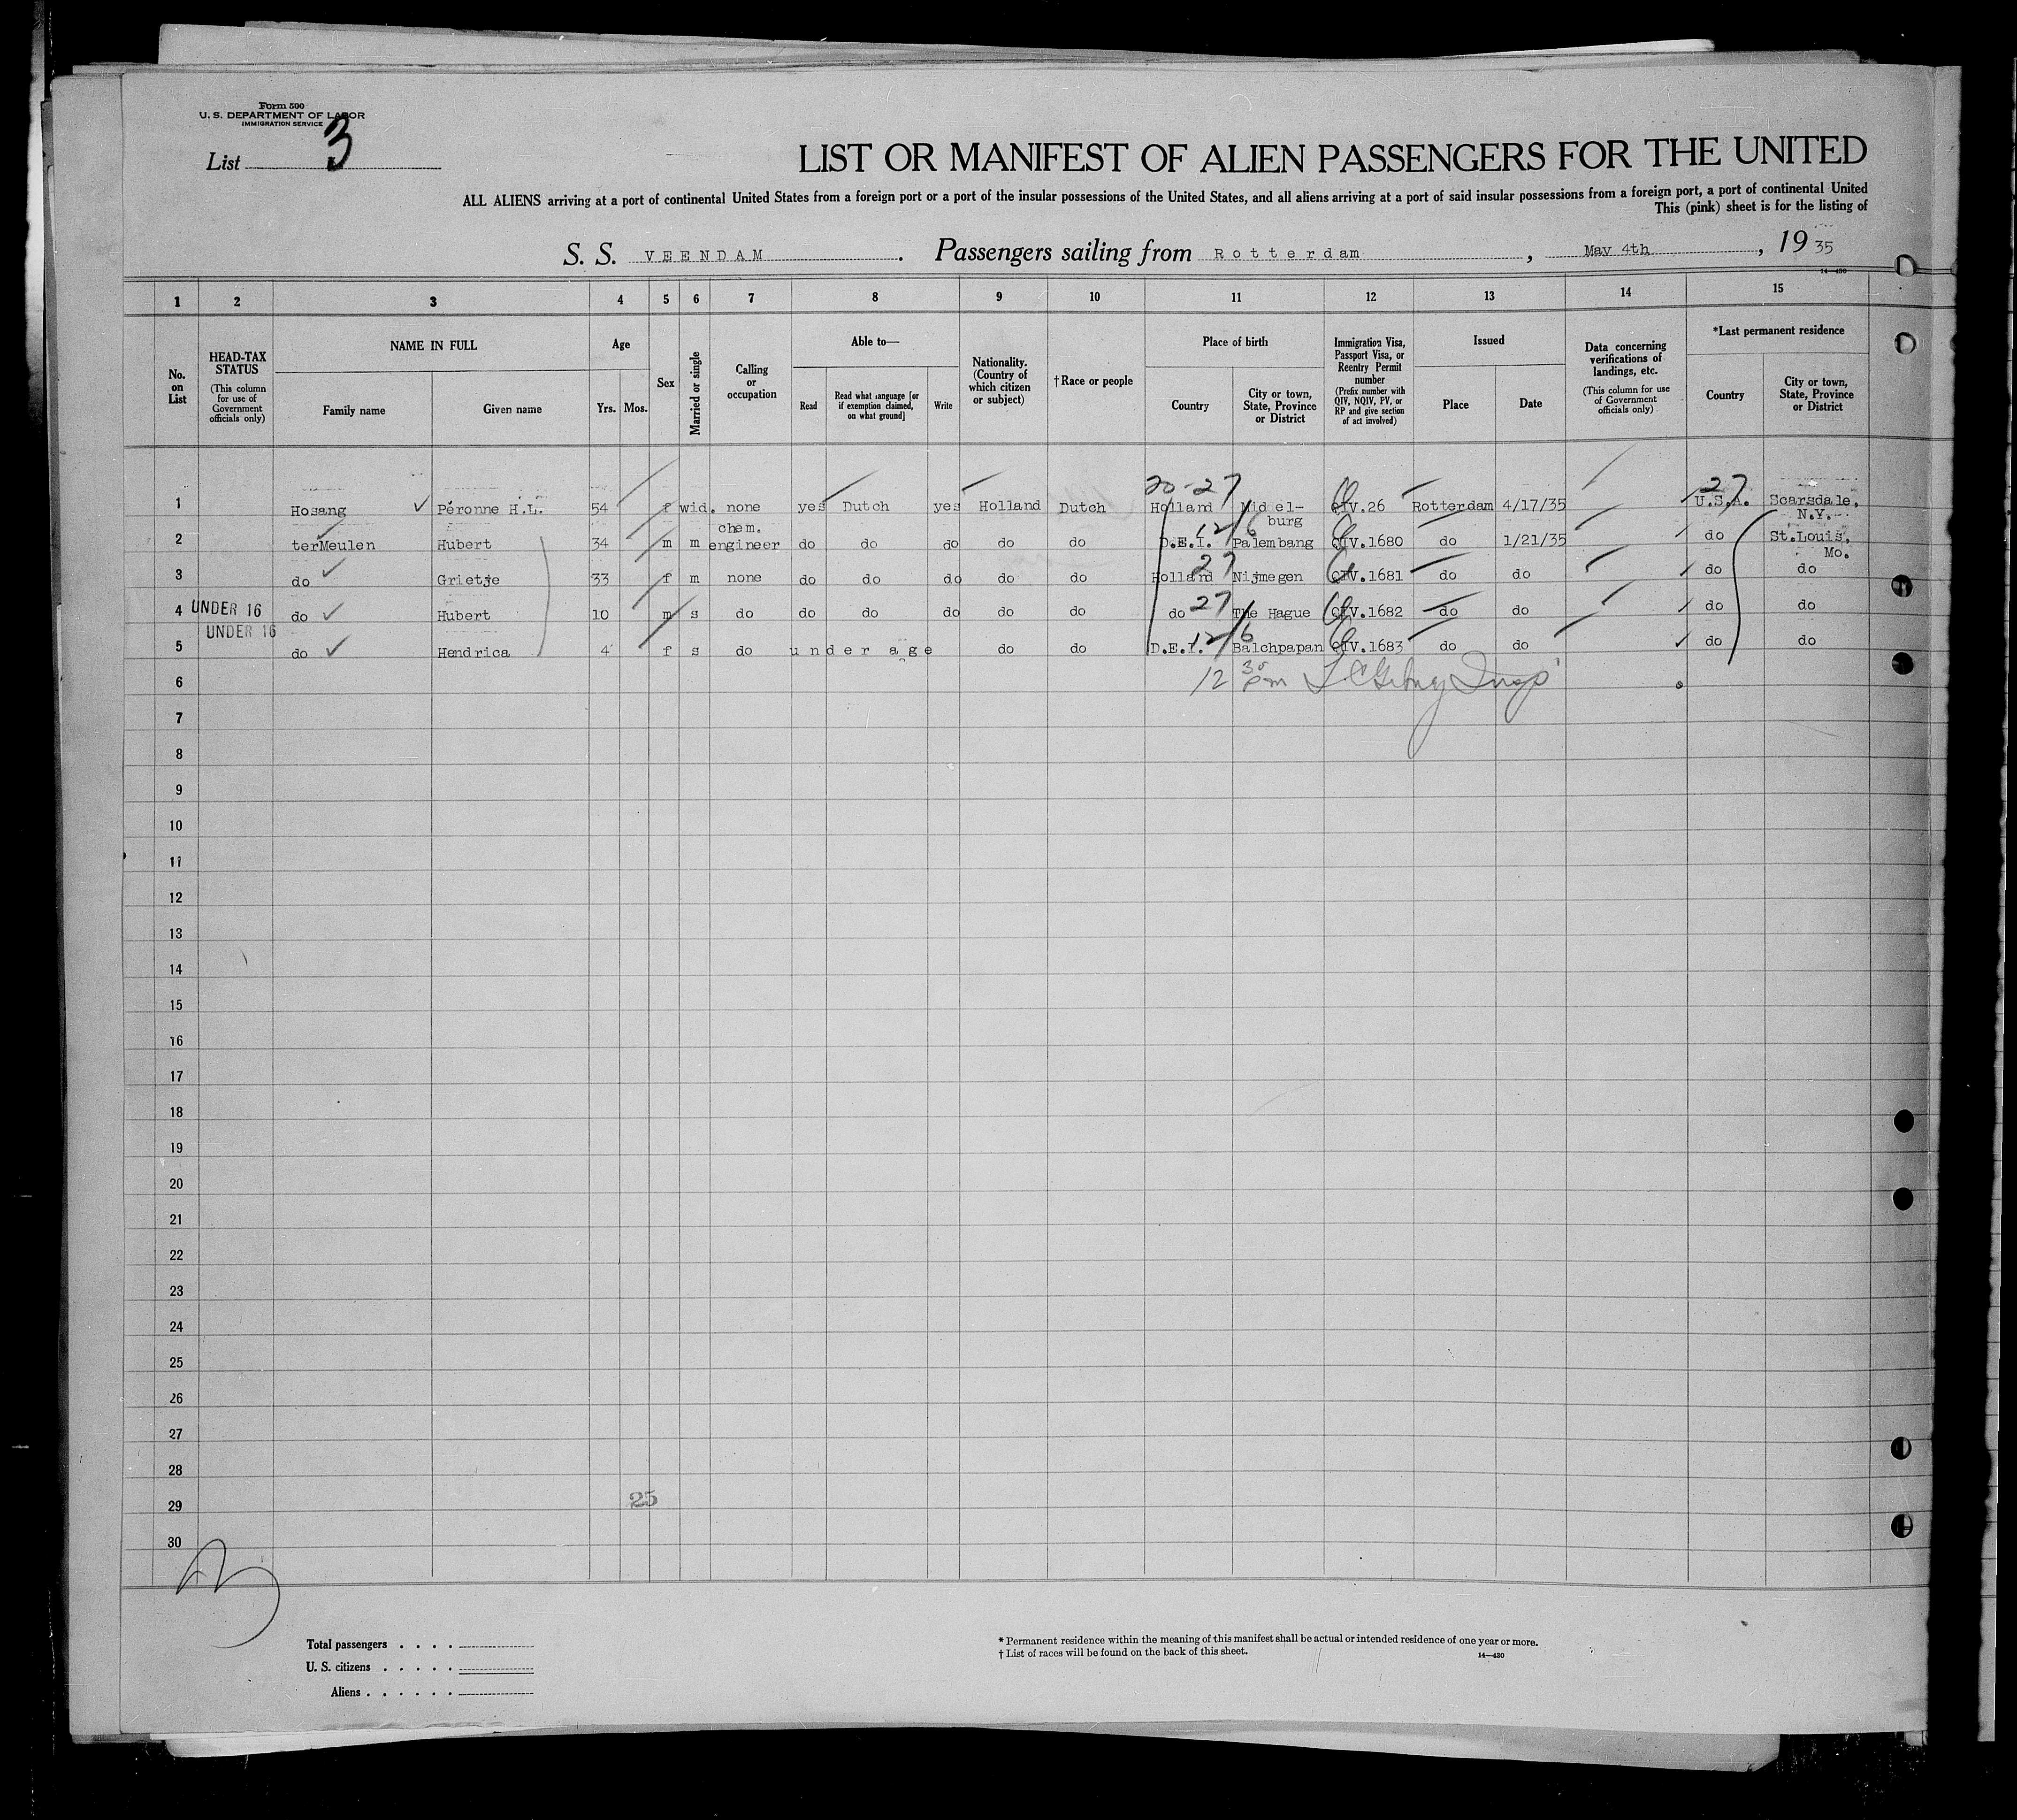 Form 500
U. S. DEPARTMENT OF LABOR
IMMIGRATION SERVICE
List 3
LIST OR MANIFEST OF ALIEN PASSENGERS FOR THE UNITED
ALL ALIENS arriving at a port of continental United States from a foreign port or a port of the insular possessions of the United States, and all aliens arriving at a port of said insular possessions from a foreign port, a port of continental United
This (pink) sheet is for the listing of
S. S. VEENDAM. Passengers sailing from Rotterdam, May 4th, 19 35
14—430
1 2 3 4 5 6 7 8 9 10 11 12 13 14 15
No. on List
HEAD-TAX STATUS (This column for use of Government officials only)
NAME IN FULL
Family name Given name
Age
Yrs. Mos.
Sex
Married or single
Calling or occupation
Able to—
Read
Read what language [or if exemption claimed, on what ground]
Write
Nationality. (Country of which citizen or subject)
† Race or people
Place of birth
Country
City or town, State, Province or District
Immigration Visa, Passport Visa, or Reentry Permit number (Prefix number with QIV, NQIV, PV, or RP and give section of act involved)
Issued
Place Date
Data concerning verifications of landings, etc. (This column for use of Government officials only)
*Last permanent residence
Country
City or town, State, Province or District
20-27 27
1 Hosang Péronne H.L. 54 f wid. none yes Dutch yes Holland Dutch Holland Middel-burg QIV.26 Rotterdam 4/17/35 U.S.A. Scarsdale, N.Y.
12/6
2 terMeulen Hubert 34 m m chem. engineer do do do do do D.E.I. Palembang QIV.1680 do 1/21/35 do St.Louis, Mo.
27
3 do Grietje 33 f m none do do do do do Holland Nijmegen QIV.1681 do do do do
27
4 UNDER 16 do Hubert 10 m s do do do do do do do The Hague QIV.1682 do do do do
12/6
5 UNDER 16 do Hendrica 4 f s do under age do do D.E.I. Balchpapan QIV.1683 do do do do
6 12 30 pm Insp
7
8
9
10
11
12
13
14
15
16
17
18
19
20
21
22
23
24
25
26
27
28
29 25
30
Total passengers . . . .
U. S. citizens . . . . .
Aliens . . . . . .
* Permanent residence within the meaning of this manifest shall be actual or intended residence of one year or more.
† List of races will be found on the back of this sheet. 14—430